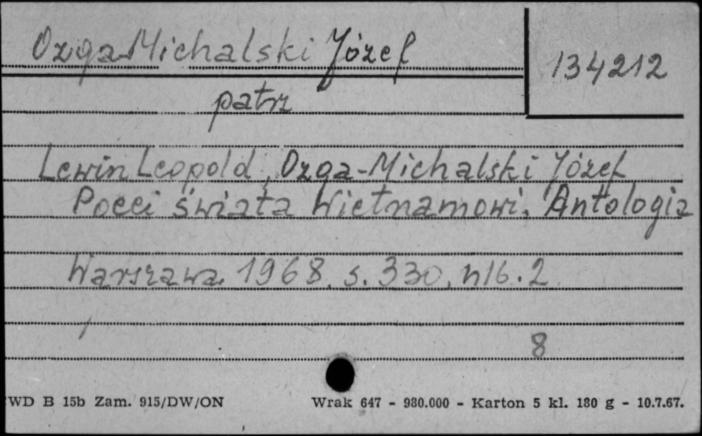 Ozga-Michalski Józef
134212
patrz
Lewin Leopold, Ozga-Michalski Józef
Poeci świata Wietnamowi. Antologia
Warszawa 1968, s. 330, nlb. 2
8
WD B 15b Zam. 915/DW/ON Wrak 647 - 980.000 - Karton 5 kl. 180 g - 10.7.67.